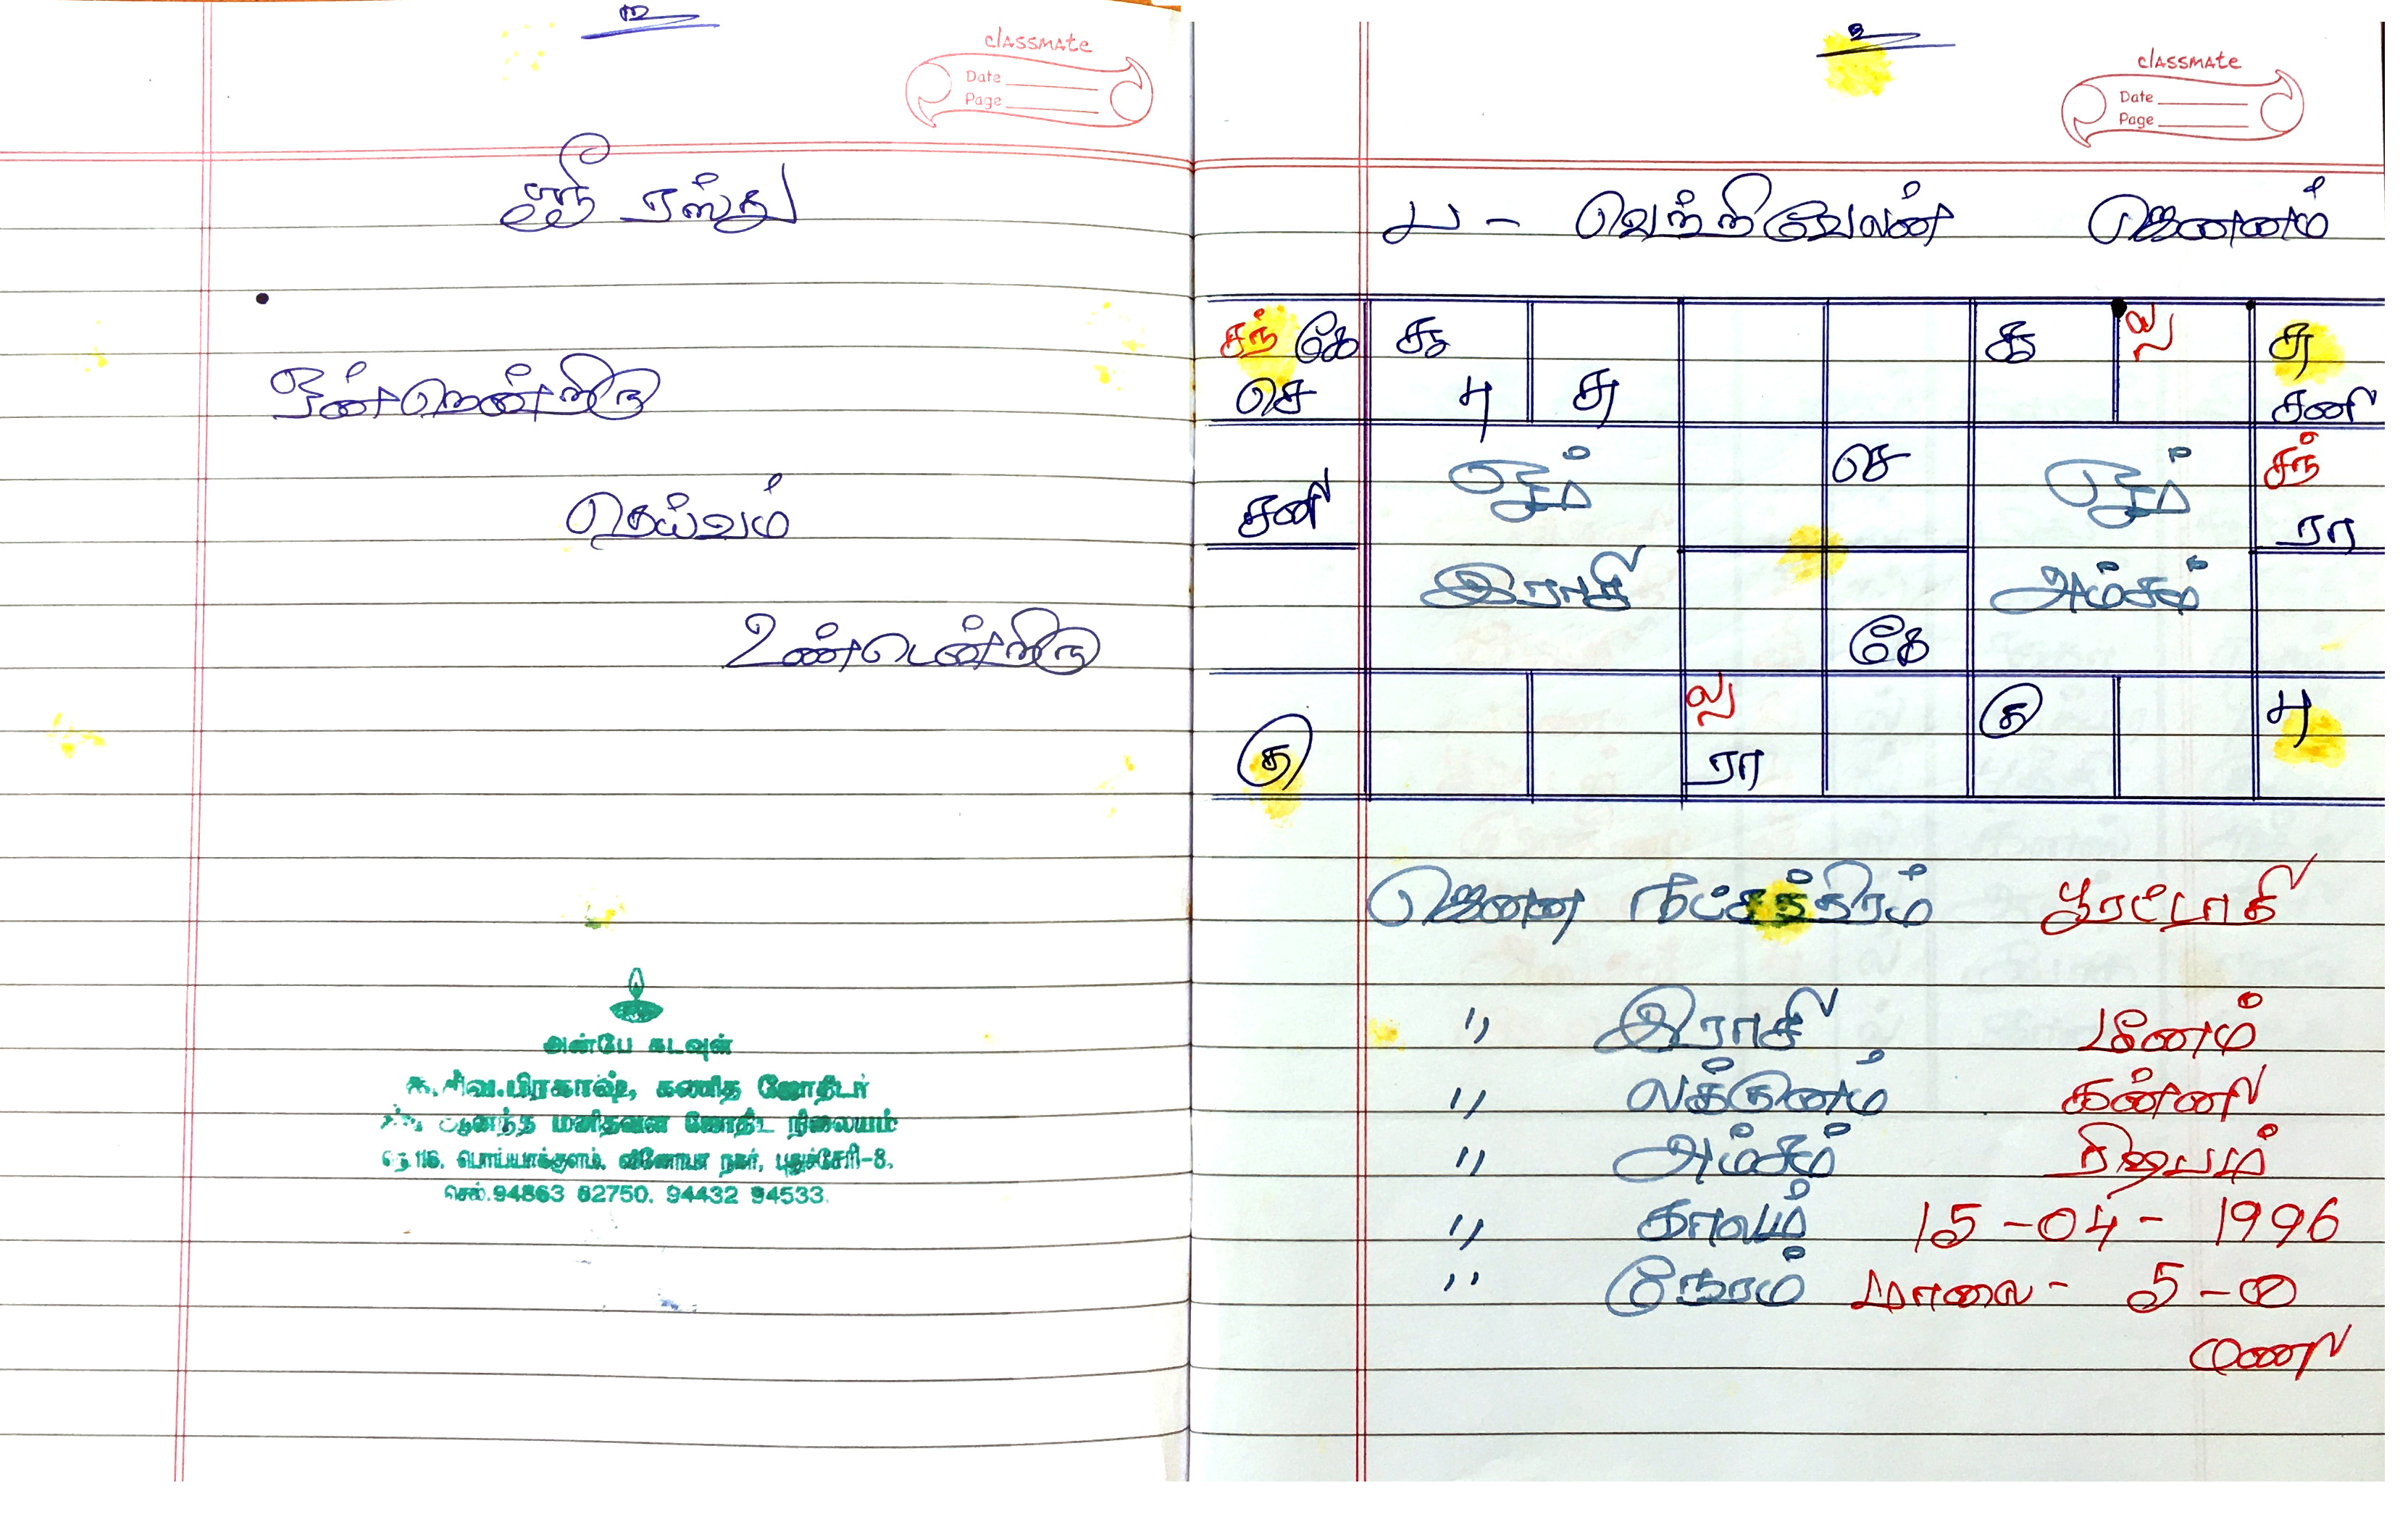 ௩
classmate
Date
Page
ஸ்ரீ ரஸ்து
நன்றென்றிரு
தெய்வம்
உண்டென்றிரு
அன்பே கடவுள்
சு.சிவ.பிரகாஷ், கணித ஜோதிடர்
ஆனந்த மனிதவள ஜோதிட நிலையம்
116, பொய்யாக்குளம், வினோபா நகர், புதுச்சேரி-8.
செல்.94863 62750. 94432 94533.
௨
classmate
Date
Page
ப - வெற்றிவேலன் ஜெனனம்
சந் கே சு கு ல சு
செ பு சு சனி
சனி ஓம் செ ஓம் சந்
ரா
இராசி அம்சம்
கே
கு ல கு பு
ரா
ஜெனன நட்சத்திரம் பூரட்டாதி
" இராசி மீனம்
" லக்குனம் கன்னி
" அம்சம் ரிஷபம்
" காலம் 15-04-1996
" நேரம் மாலை - 5-00
மணி